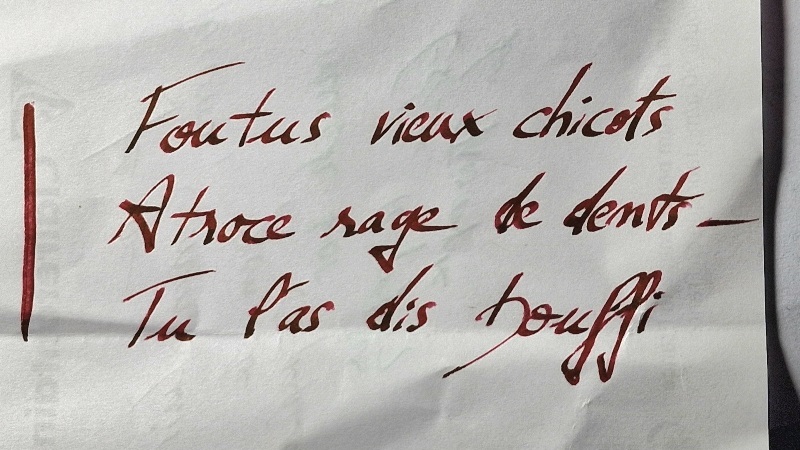 Foutus vieux chicots
Atroce rage de dents –
Tu l'as dis bouffi